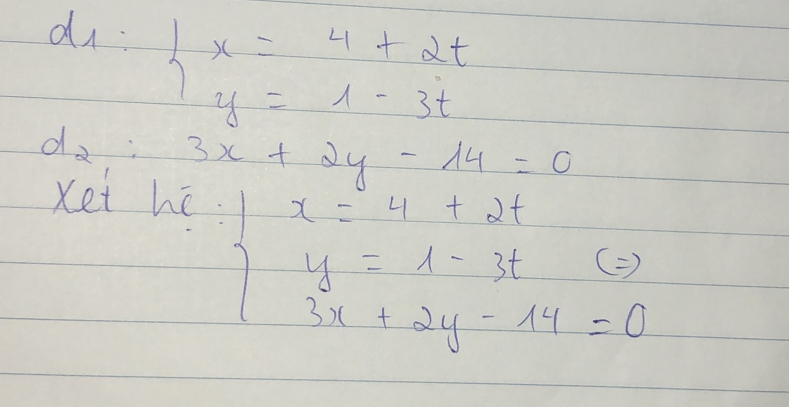 d1 : { x = 4 + 2t
y = 1 - 3t
d2 : 3x + 2y - 14 = 0
Xét hệ : { x = 4 + 2t
y = 1 - 3t (=)
3x + 2y - 14 = 0